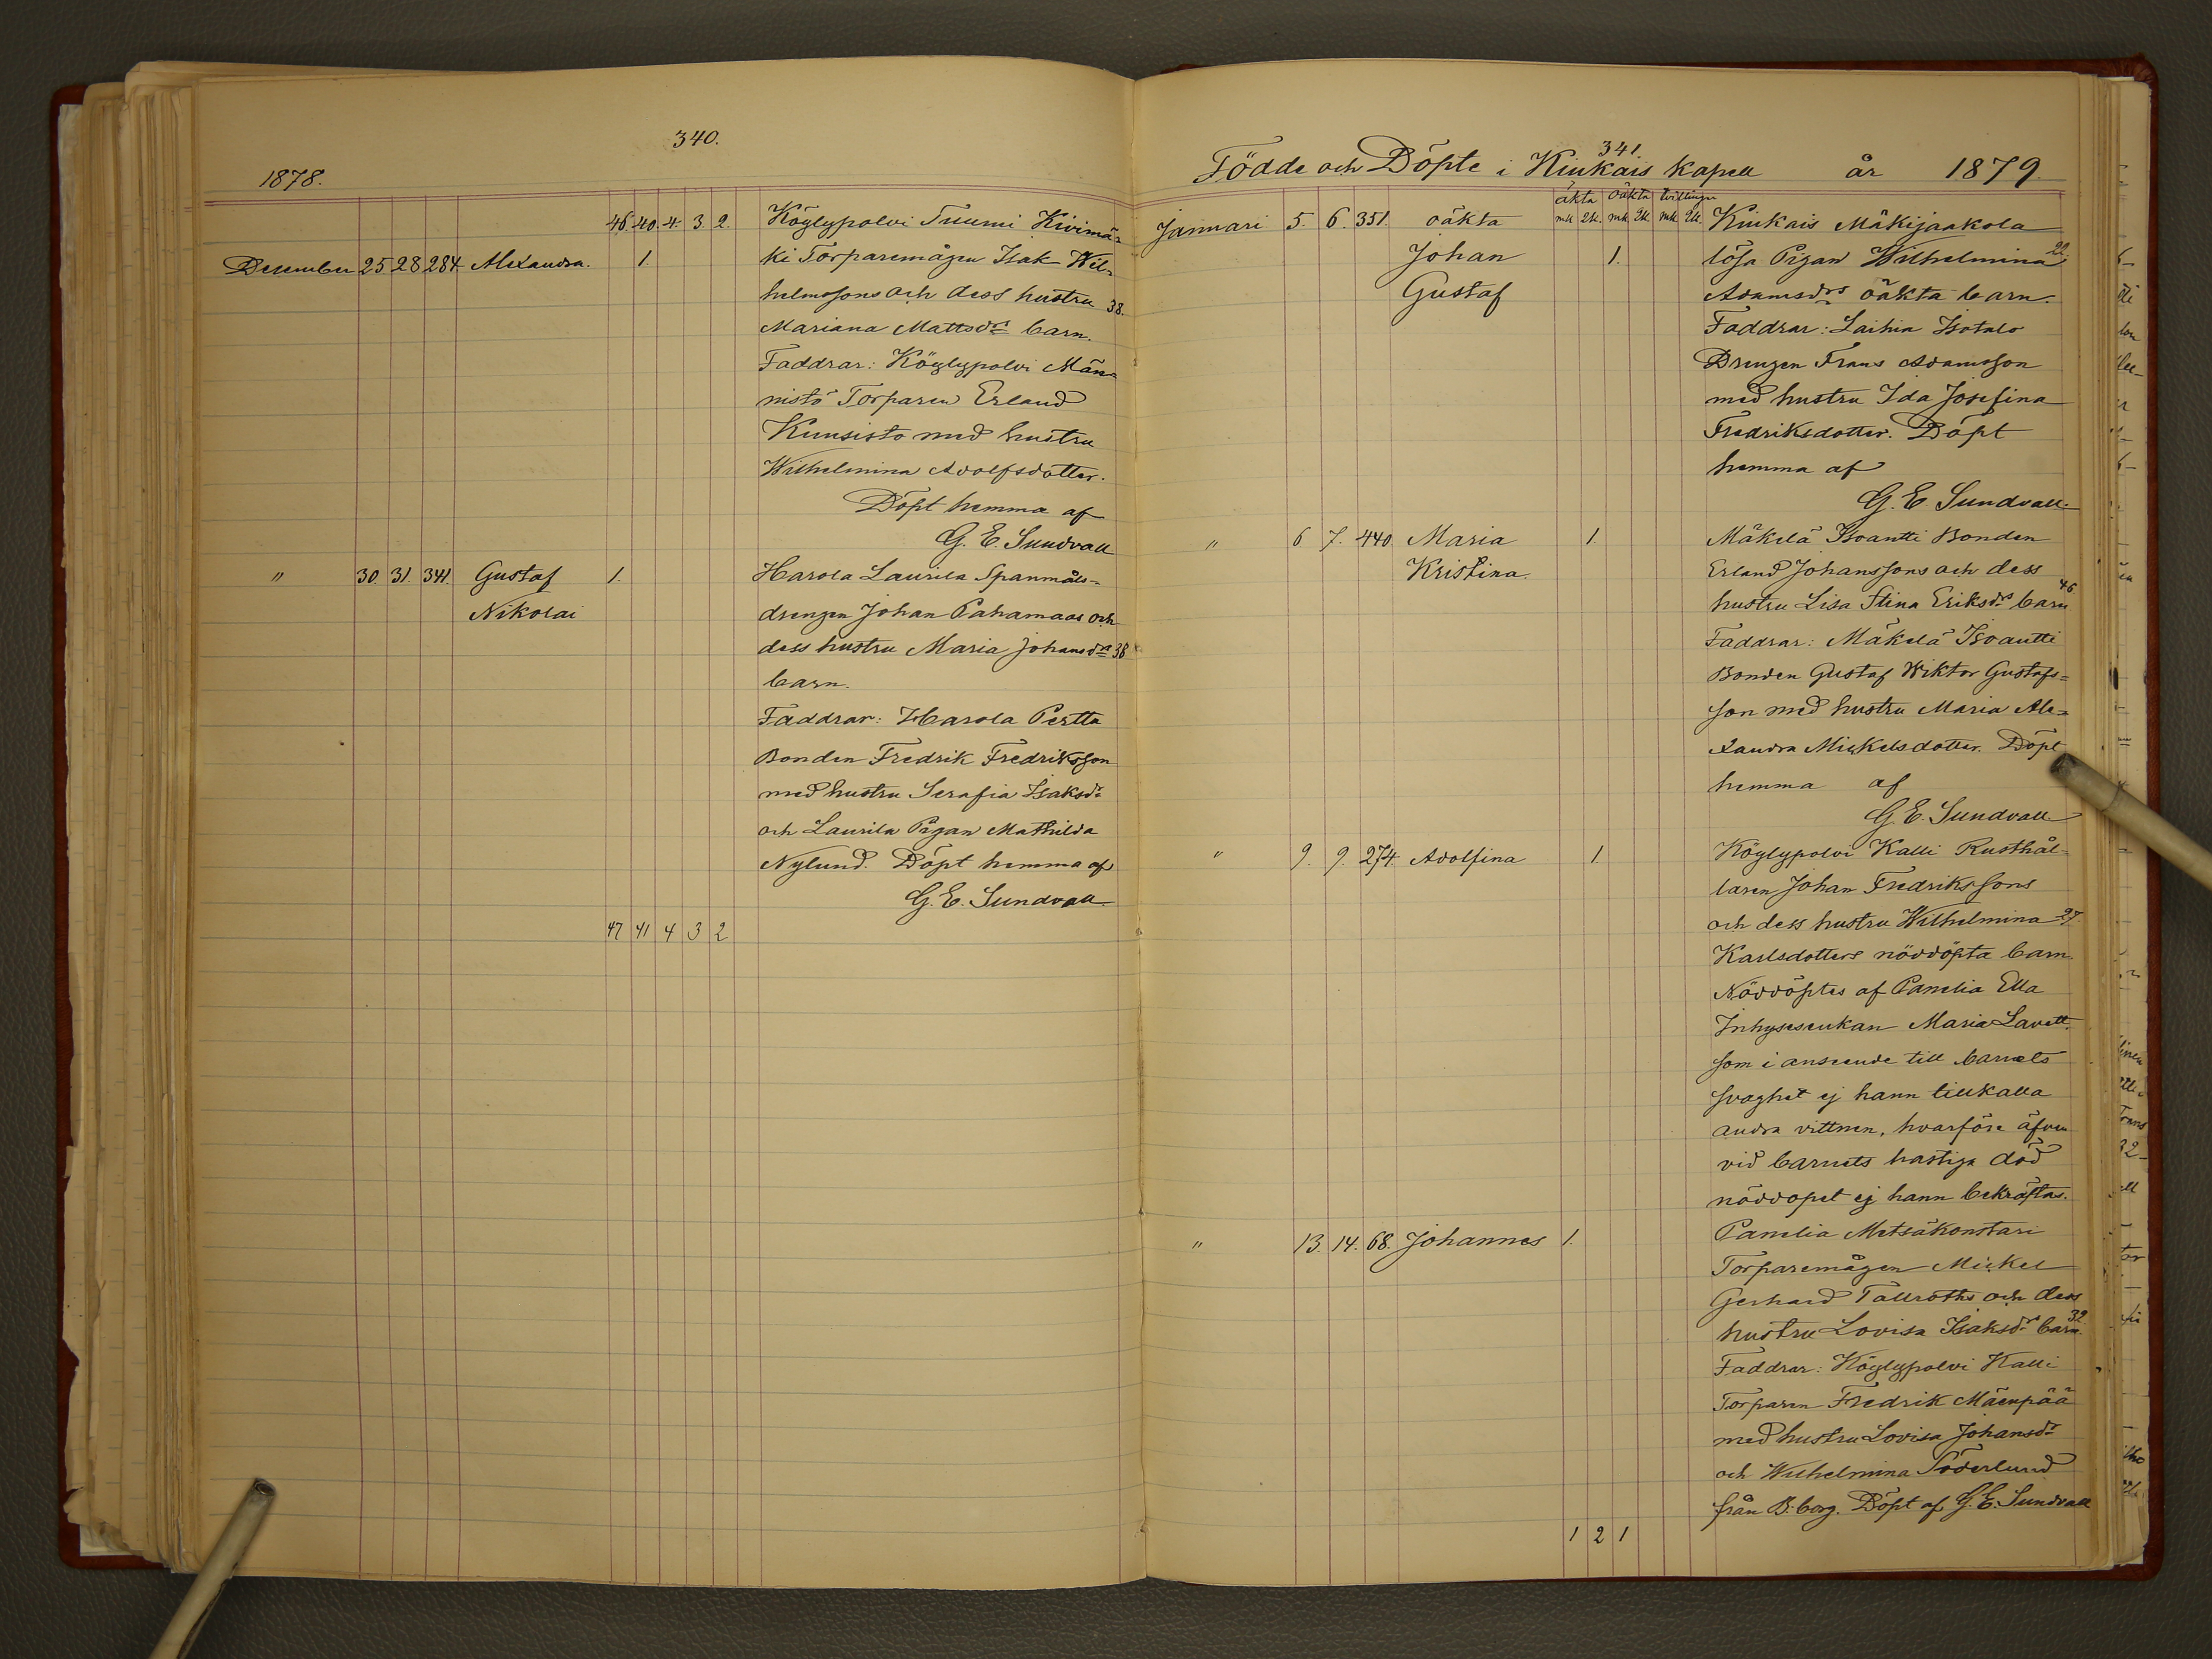 340.
1878.
46. 40. 4. 3. 2. Köylypolvi Tuumi Kivimä-
December 25 28 284 Alexandra. 1. ki Torparemågen Isak Wil-
helmssons och dess hustru 38.
Mariana Mattsdrs barn.
Faddrar: Köylypolvi Män-
nistö Torparen Erland
Kuusisto med hustru
Wilhelmina Adolfsdotter.
Döpt hemma af
G. E. Sundvall
" 30. 31. 341. Gustaf 1. Harola Laurila Spanmåls-
Nikolai drengen Johan Pahamaas och
dess hustru Maria Johansdrs 38
barn.
Faddrar: Harola Pertta
Bonden Fredrik Fredriksson
med hustru Serafia Isaksdr
och Laurila Pigan Mathilda
Nylund. Döpt hemma af
G. E. Sundvall
47 41 4 3 2
341.
Födde och Döpte i Kiukais Kapell år 1879.
äkta oäkta tvillingar
mk. Qk. mk. Qk. mk. Qk.
Januari 5. 6. 351. oäkta Kiukais Mäkijaakola
Johan 1. lösa Pigan Wilhelmina 22.
Gustaf Adamsdrs oäkta barn.
Faddrar: Laihia Isotalo
Drengen Frans Adamsson
med hustru Ida Josefina
Fredriksdotter. Döpt
hemma af
G. E. Sundvall.
" 6 7. 440. Maria 1. Mäkelä Isoantti Bonden
Kristina. Erland Johanssons och dess
hustru Lisa Stina Eriksdrs barn 46
Faddrar: Mäkelä Isoantti
Bonden Gustaf Wiktor Gustafs-
son med hustru Maria Ale-
xandra Mickelsdotter. Döpt
hemma af
G. E. Sundvall
" 9. 9. 274. Adolfina 1. Köylypolvi Kalli Rusthål-
laren Johan Fredrikssons
och dess hustru Wilhelmina 27.
Karlsdotters nöddöpta barn.
Nöddöptes af Panelia Ella
Inhysesenkan Maria Lavett.
som i anseende till barnets
svaghet ej hann tillkalla
andra vittnen, hvarföre äfven
vid barnets hastiga död
nöddopet ej hann bekräftas.
" 13. 14. 68. Johannes 1. Panelia Metsäkonstari
Torparemågen Mickel
Gerhard Tallroths och dess
hustru Lovisa Isaksdrs barn. 32
Faddrar: Köylypolvi Kalli
Torparen Fredrik Mäenpää
med hustru Lovisa Johansdr
och Wilhelmina Söderlund
från B:borg. Döpt af G. E. Sundvall
1 2 1